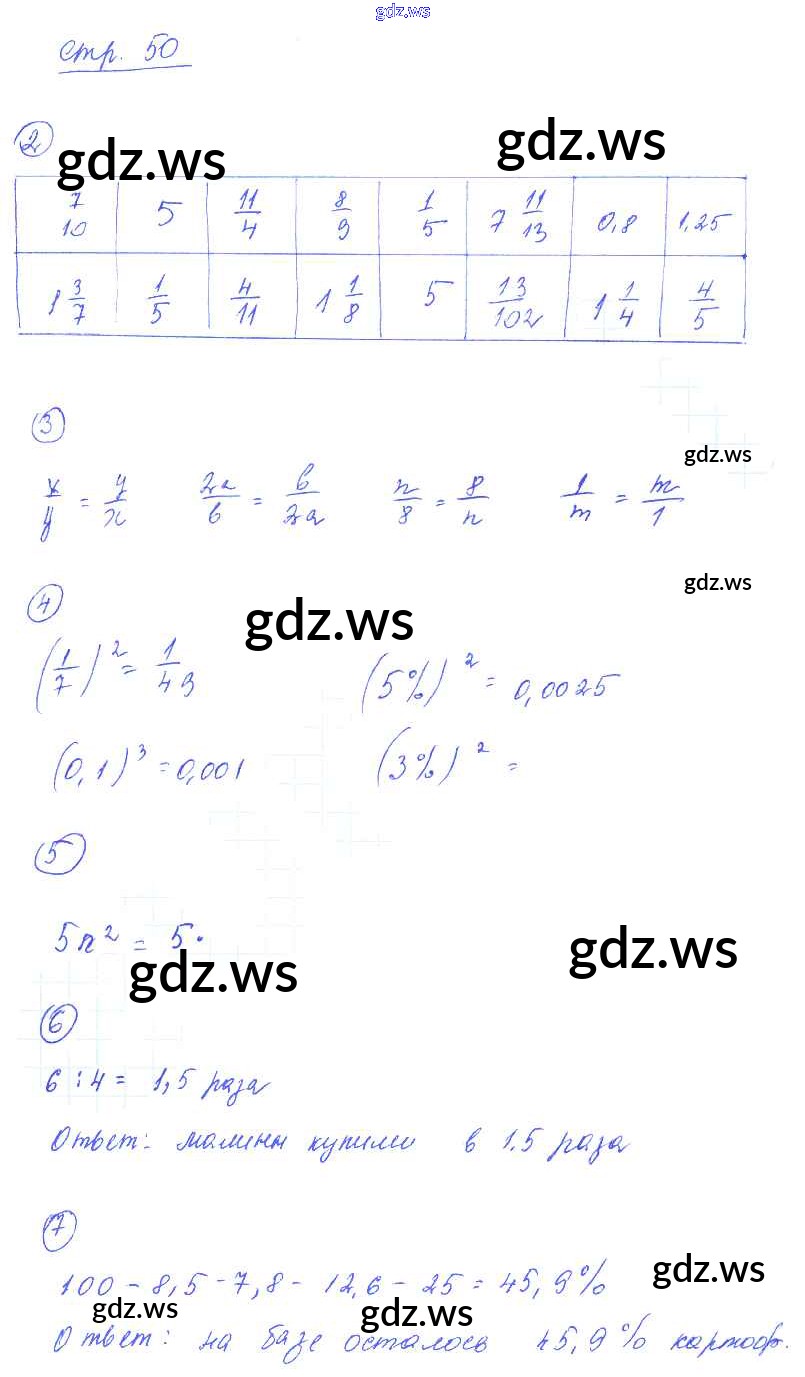 gdz.ws
стр. 50
2
gdz.ws gdz.ws
7/10 5 11/4 8/9 1/5 7 11/13 0,8 1,25
1 3/7 1/5 4/11 1 1/8 5 13/102 1 1/4 4/5
3
gdz.ws
x/y = y/x 2a/b = b/2a n/8 = 8/n 1/m = m/1
gdz.ws
4 gdz.ws
(1/7)² = 1/49 (5%)² = 0,0025
(0,1)³ = 0,001 (3%)² =
5
5n² = 5·
gdz.ws gdz.ws
6
6 : 4 = 1,5 раза
Ответ: малины купили в 1.5 раза
7
100 - 8,5 - 7,8 - 12,6 - 25 = 45,9%
gdz.ws gdz.ws gdz.ws
Ответ: на базе осталось 45,9% картоф.